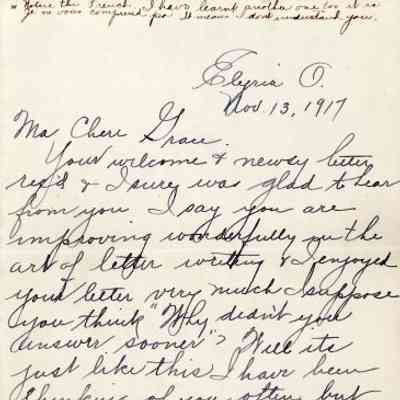 * Notice the French. I have learnt another one too it is
je ne vous comprend pas It means I dont understand you.
Elyria O.
Nov. 13, 1917
Ma Chere Grace.
Your welcome & newsy letter
rec'd & I sure was glad to hear
from you I say you are
improving wonderfully in the
art of letter writing & I enjoyed
your letter very much I suppose
you think "Why didn't you
answer sooner"? Well its
just like this I have been
thinking of you often but